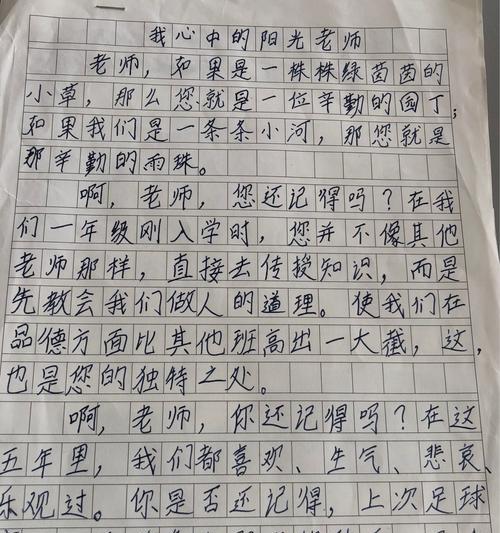 我心中的阳光老师
老师，如果是一株株绿茵茵的
小草，那么您就是一位辛勤的园丁；
如果我们是一条条小河，那您就是
那辛勤的雨珠。
啊，老师，您还记得吗？在我
们一年级刚入学时，您并不像其他
老师那样，直接去传授知识，而是
先教会我们做人的道理。使我们在
品德方面比其他班高出一大截，这，
也是您的独特之处。
啊，老师，你还记得吗？在这
五年里，我们都喜欢、生气、悲哀、
乐观过。你是否还记得，上次足球